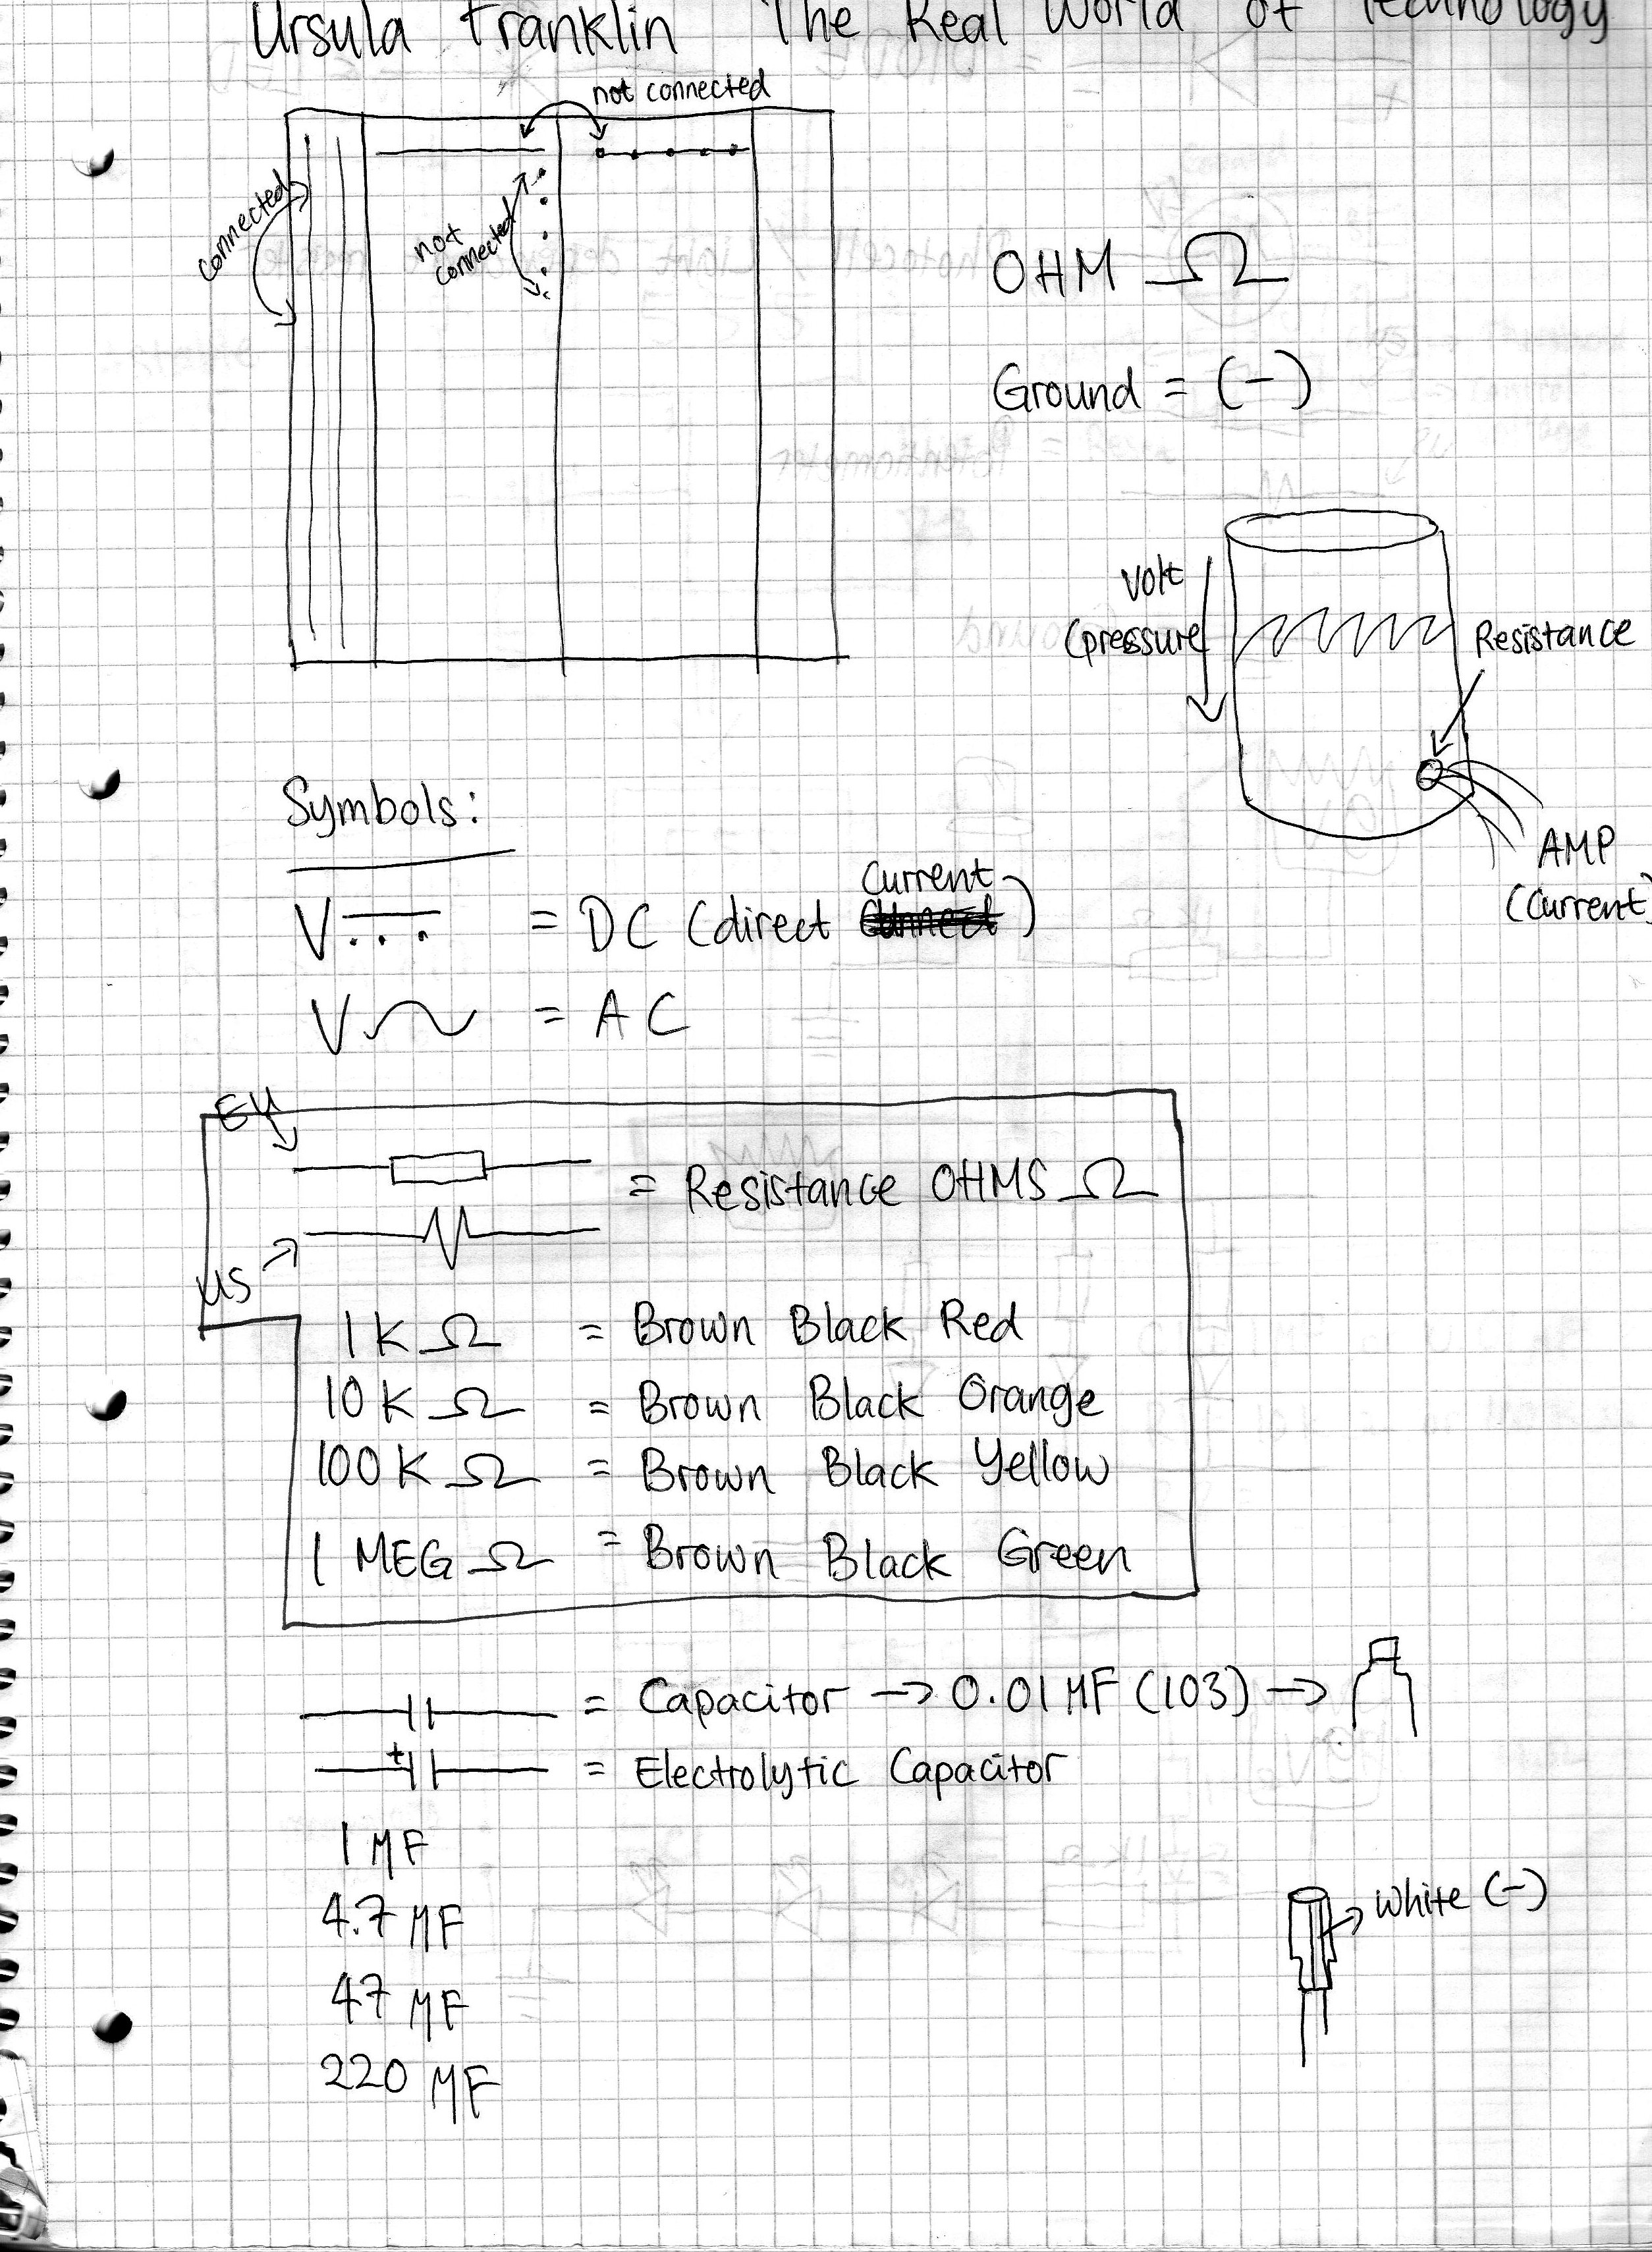 Ursula Franklin The Real World of Technology
not connected
connected
not
connected
OHM Ω
Ground = (-)
Volt
(pressure
Resistance
AMP
(Current)
Symbols:
Current
V = DC (direct Connect)
V = AC
EU
= Resistance OHMS Ω
US
1K Ω = Brown Black Red
10K Ω = Brown Black Orange
100K Ω = Brown Black Yellow
1 MEG Ω = Brown Black Green
= Capacitor → 0.01 MF (103) →
+ = Electrolytic Capacitor
1 MF
4.7 MF
47 MF
220 MF
White (-)